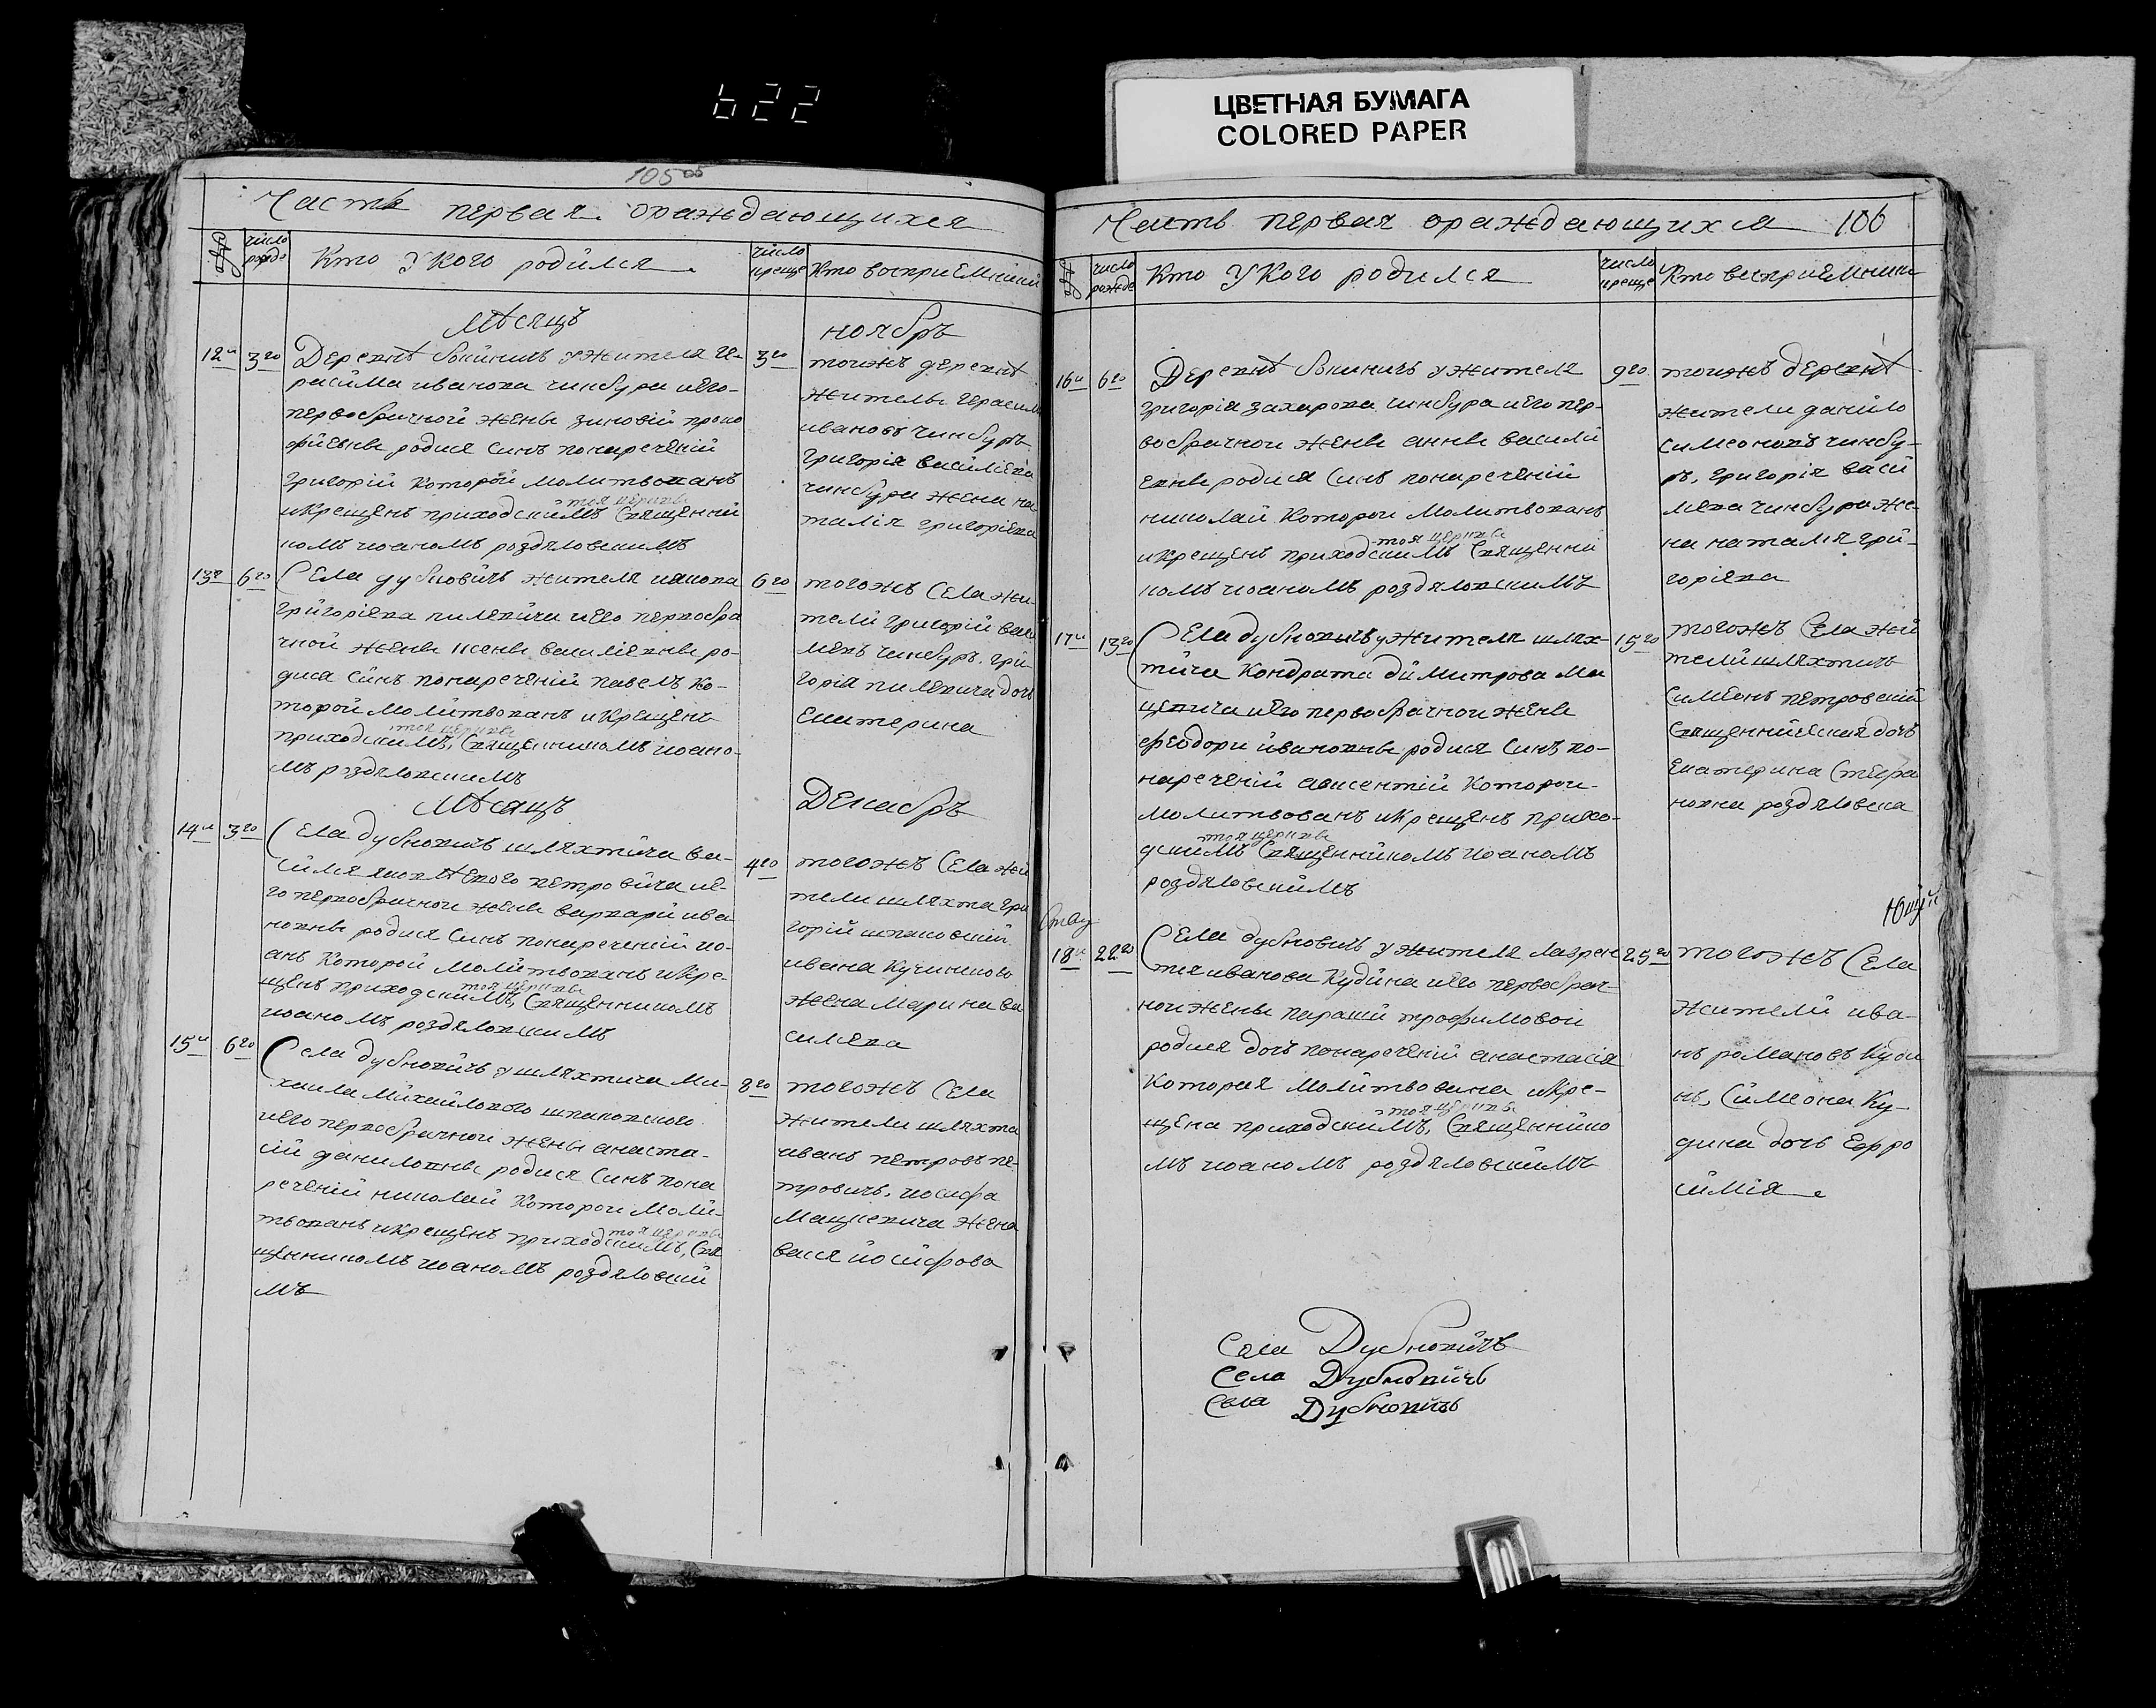 622
ЦВЕТНАЯ БУМАГА
COLORED PAPER
105
Часть первая ораждающихся
число рожде
Кто укого родился
число креще
Кто восприемники
Мѣсяцъ
ноябрь
12й
3го
Деревнѣ быничъ ужителя ге-
расима иванова чинбура иего
первобрачной жены зиновій проко
фйевны родися синъ понареченій
григорій которой молитвованъ
тоя церкви
икрещенъ приходскимъ Священни
комъ иоаномъ роздяловскимъ
3го
тоижъ деревнѣ
жители герасимъ
ивановъ чинбуръ
григорія василіева
чинбура жена на
талія григоріева
13й
6го
Села дубновичъ жителя
григоріева пилевича иего первобра
чной жены василіевны ро-
дися синъ понареченій павелъ ко-
торой молитвованъ икрещенъ
тоя церкви
приходскимъ, Священникомъ иоано-
мъ роздяловскимъ
6го
тогожъ Села жи-
тели григорій васи
левъ чинбуръ. гри-
горія пилевича дочь
Екатерина
Мѣсяцъ
Декабрь
14й
3го
Села дубновичъ шляхтича ва-
силя петровича ие-
го первобрачной жены варвари ива
новны родися синъ понареченій ио-
анъ Которой молитвованъ икре-
тоя церкви
щенъ приходскимъ, Священникомъ
иоаномъ роздяловскимъ
4го
тогожъ Села жи
тели шляхта гри
горій шпаковский
ивана
жена марина ва
силева
15й
6го
Села дубновичъ ушляхтича ми-
хаила михайлового шпаковского
иего первобрачной жены анаста-
сій даниловны родися Синъ пона
реченій николай Которой моли-
тоя церкви
твованъ икрещенъ приходскимъ, Свя
щенникомъ иоаномъ роздяловский
мъ
8го
тогожъ Села
жители шляхта
иванъ петровъ пе-
тровичъ, иосифа
мацкевича жена
васся йосифова
Часть первая ораждающихся
106
число рожде
Кто укого родился
число креще
Кто восприемники
16й
6го
Деревнѣ быничъ ужителя
григорія захарова чинбура иего пер-
вобрачной жены анны васили
евны родися Синъ понареченій
николай Которой молитвованъ
тоя церкви
икрещенъ приходскимъ Священни
комъ иоаномъ роздяловскимъ
9го
тоижъ деревнѣ
жители данило
симеоновъ чинбу-
ръ, григорія васи
лева чинбура же-
на наталя гри-
горіева
17й
13го
Села дубновичъ ужителя шлях-
тича Кондрата димитрова ма
цевича иего первобрачной жены
феодори ивановны родися синъ по-
нареченій авксентій Которой
молитвованъ икрещенъ прихо-
тоя церкви
дскимъ Священникомъ иоаномъ
роздяловскимъ
15го
тогожъ Села жи
тели шляхтичъ
Симеонъ петровский
Священническая дочь
Екатерина Стефа
новна роздяловска
18й
22го
Села дубновичъ ужителя лаврен
тея иванова Кудина иего первобрач-
ной жены параши трофимовой
родися дочь понареченій анастасія
Которая молитвована икре-
тоя церкви
щена приходскимъ, Священнико
мъ иоаномъ роздяловскимъ
25го
тогожъ Села
жители ива-
нъ романовъ Куди
нъ, Симеона Ку-
дина дочь Ефро
симія
Села Дубновичъ
Села Дубновичъ
Села Дубновичъ